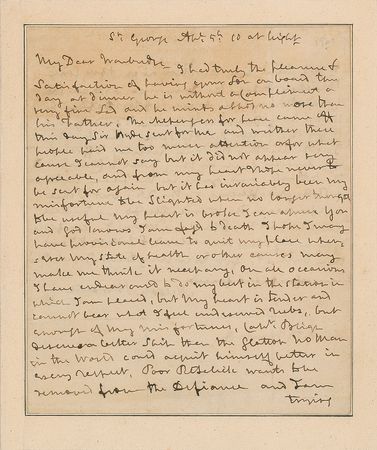 St George Apl. 5th 10 at Night
My Dear Troubridge I had truly the pleasure &
Satisfaction of having your Son on board this
day at dinner he is without a Compliment a
very fine Lad and he minds about no more than
his Father. The
this day Sir Hyde sent for me and wether these
people paid me too much attention or for what
cause I cannot say but it did not appear very
agreeable, and from my heart I hope never to
be sent for again but it has invariably been my
misfortune to be Slighted when no longer thought
to be useful my heart is broke I can assure You
and God knows I am fag'd to death I hope I may
have provisional leave to quit my place when
ever my state of health or other causes may
make me think it necessary, On all occasions
I have endeavour'd to do my best in the station in
which I am placed, but my heart is tender and
cannot bear what I feel undeserved Rubs, but
enough of my misfortunes, Capt. Bligh
deserves a better Ship than the Glatton no Man
in the World could acquit himself better in
every respect. Poor Retalick wants to be
removed from the Defiance and I am
trying